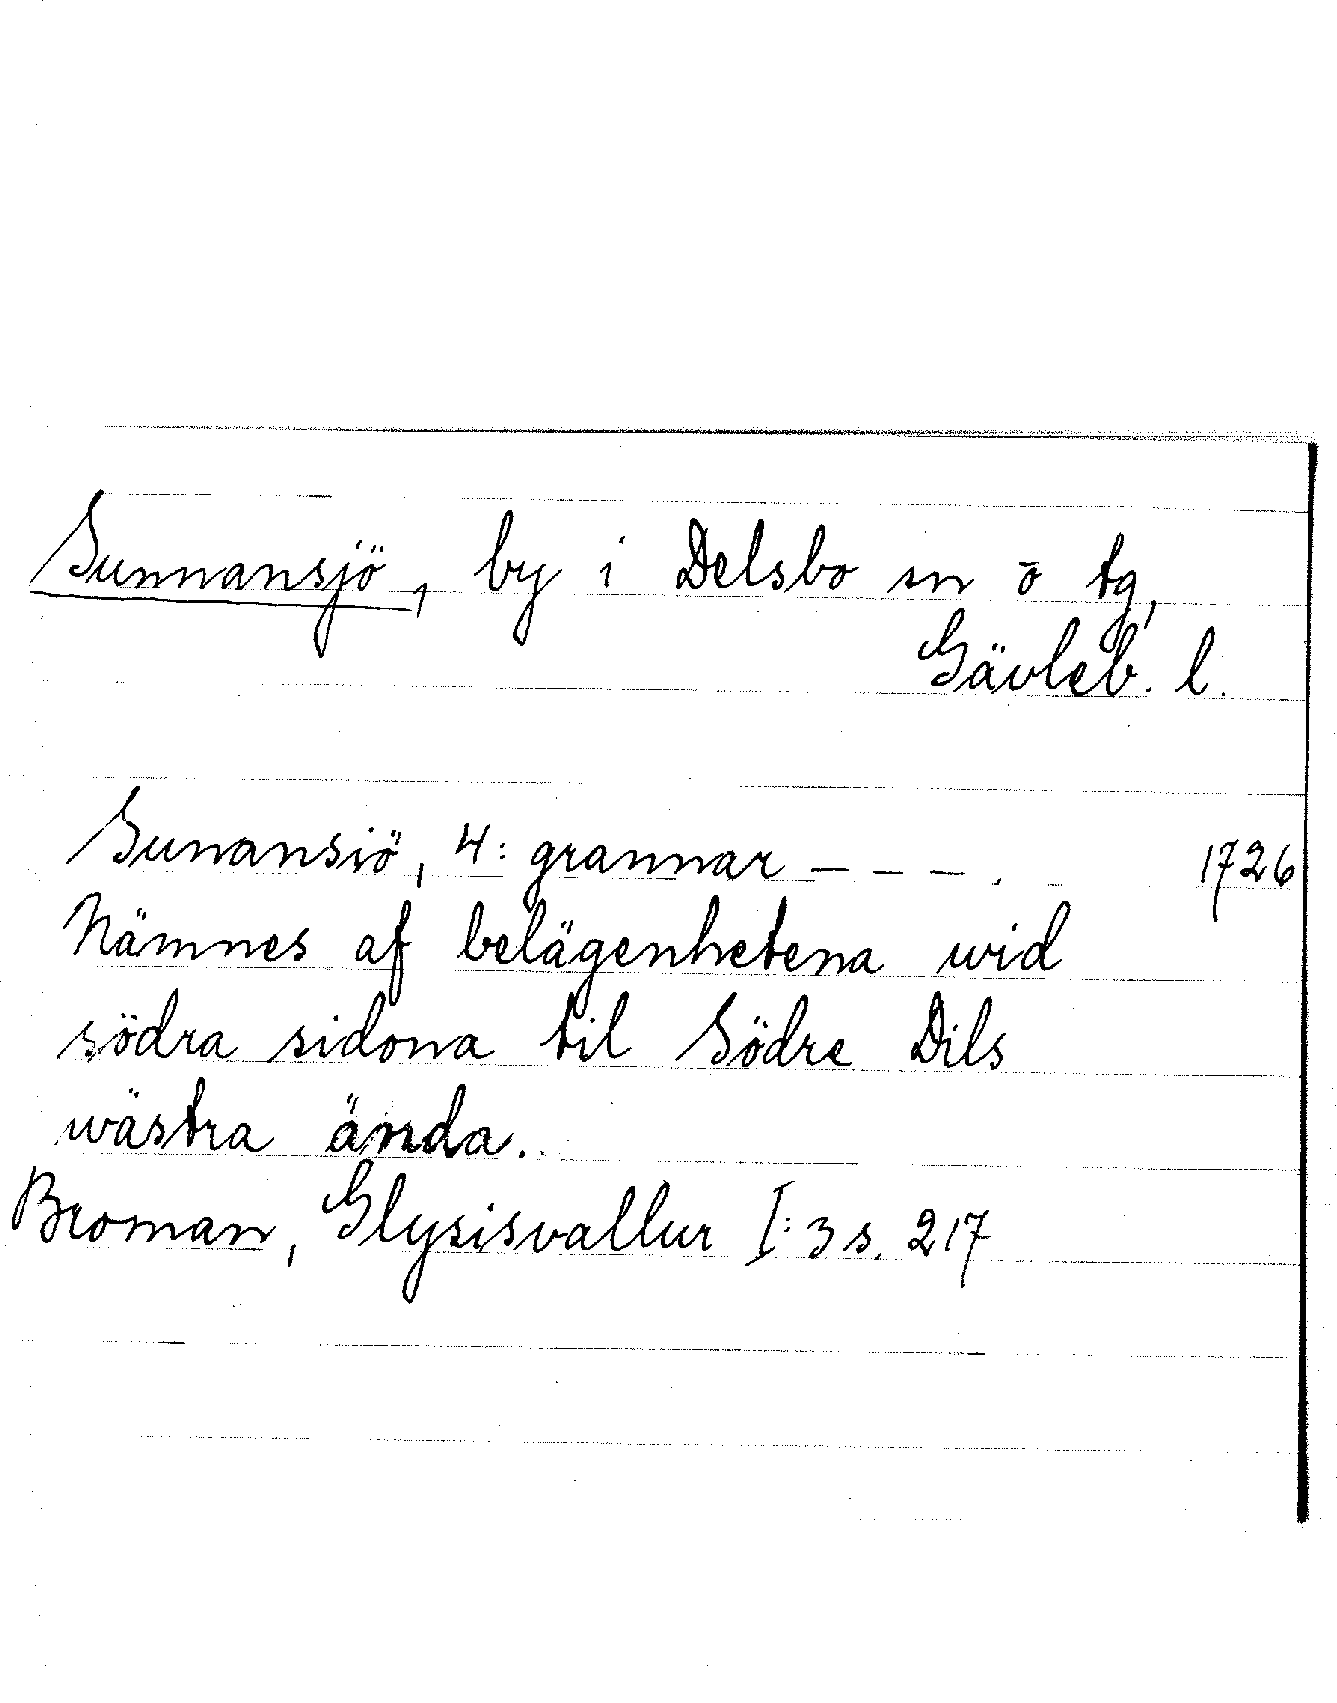 Sunnansjö, by i Delsbo sn o tg,
Gävleb. l.
Sunansiö, 4: grannar – – – . 1726
Nämnes af belägenhetena wid
södra sidona til Södre Dils
wästra ända.
Broman, Glysisvallur I: 3 s. 217